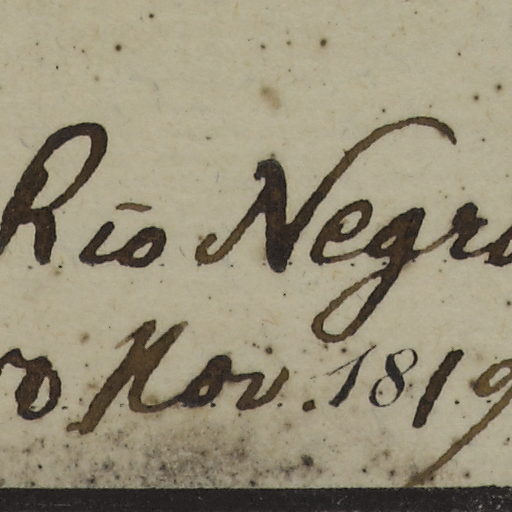 Rio Negro
Nov. 1819